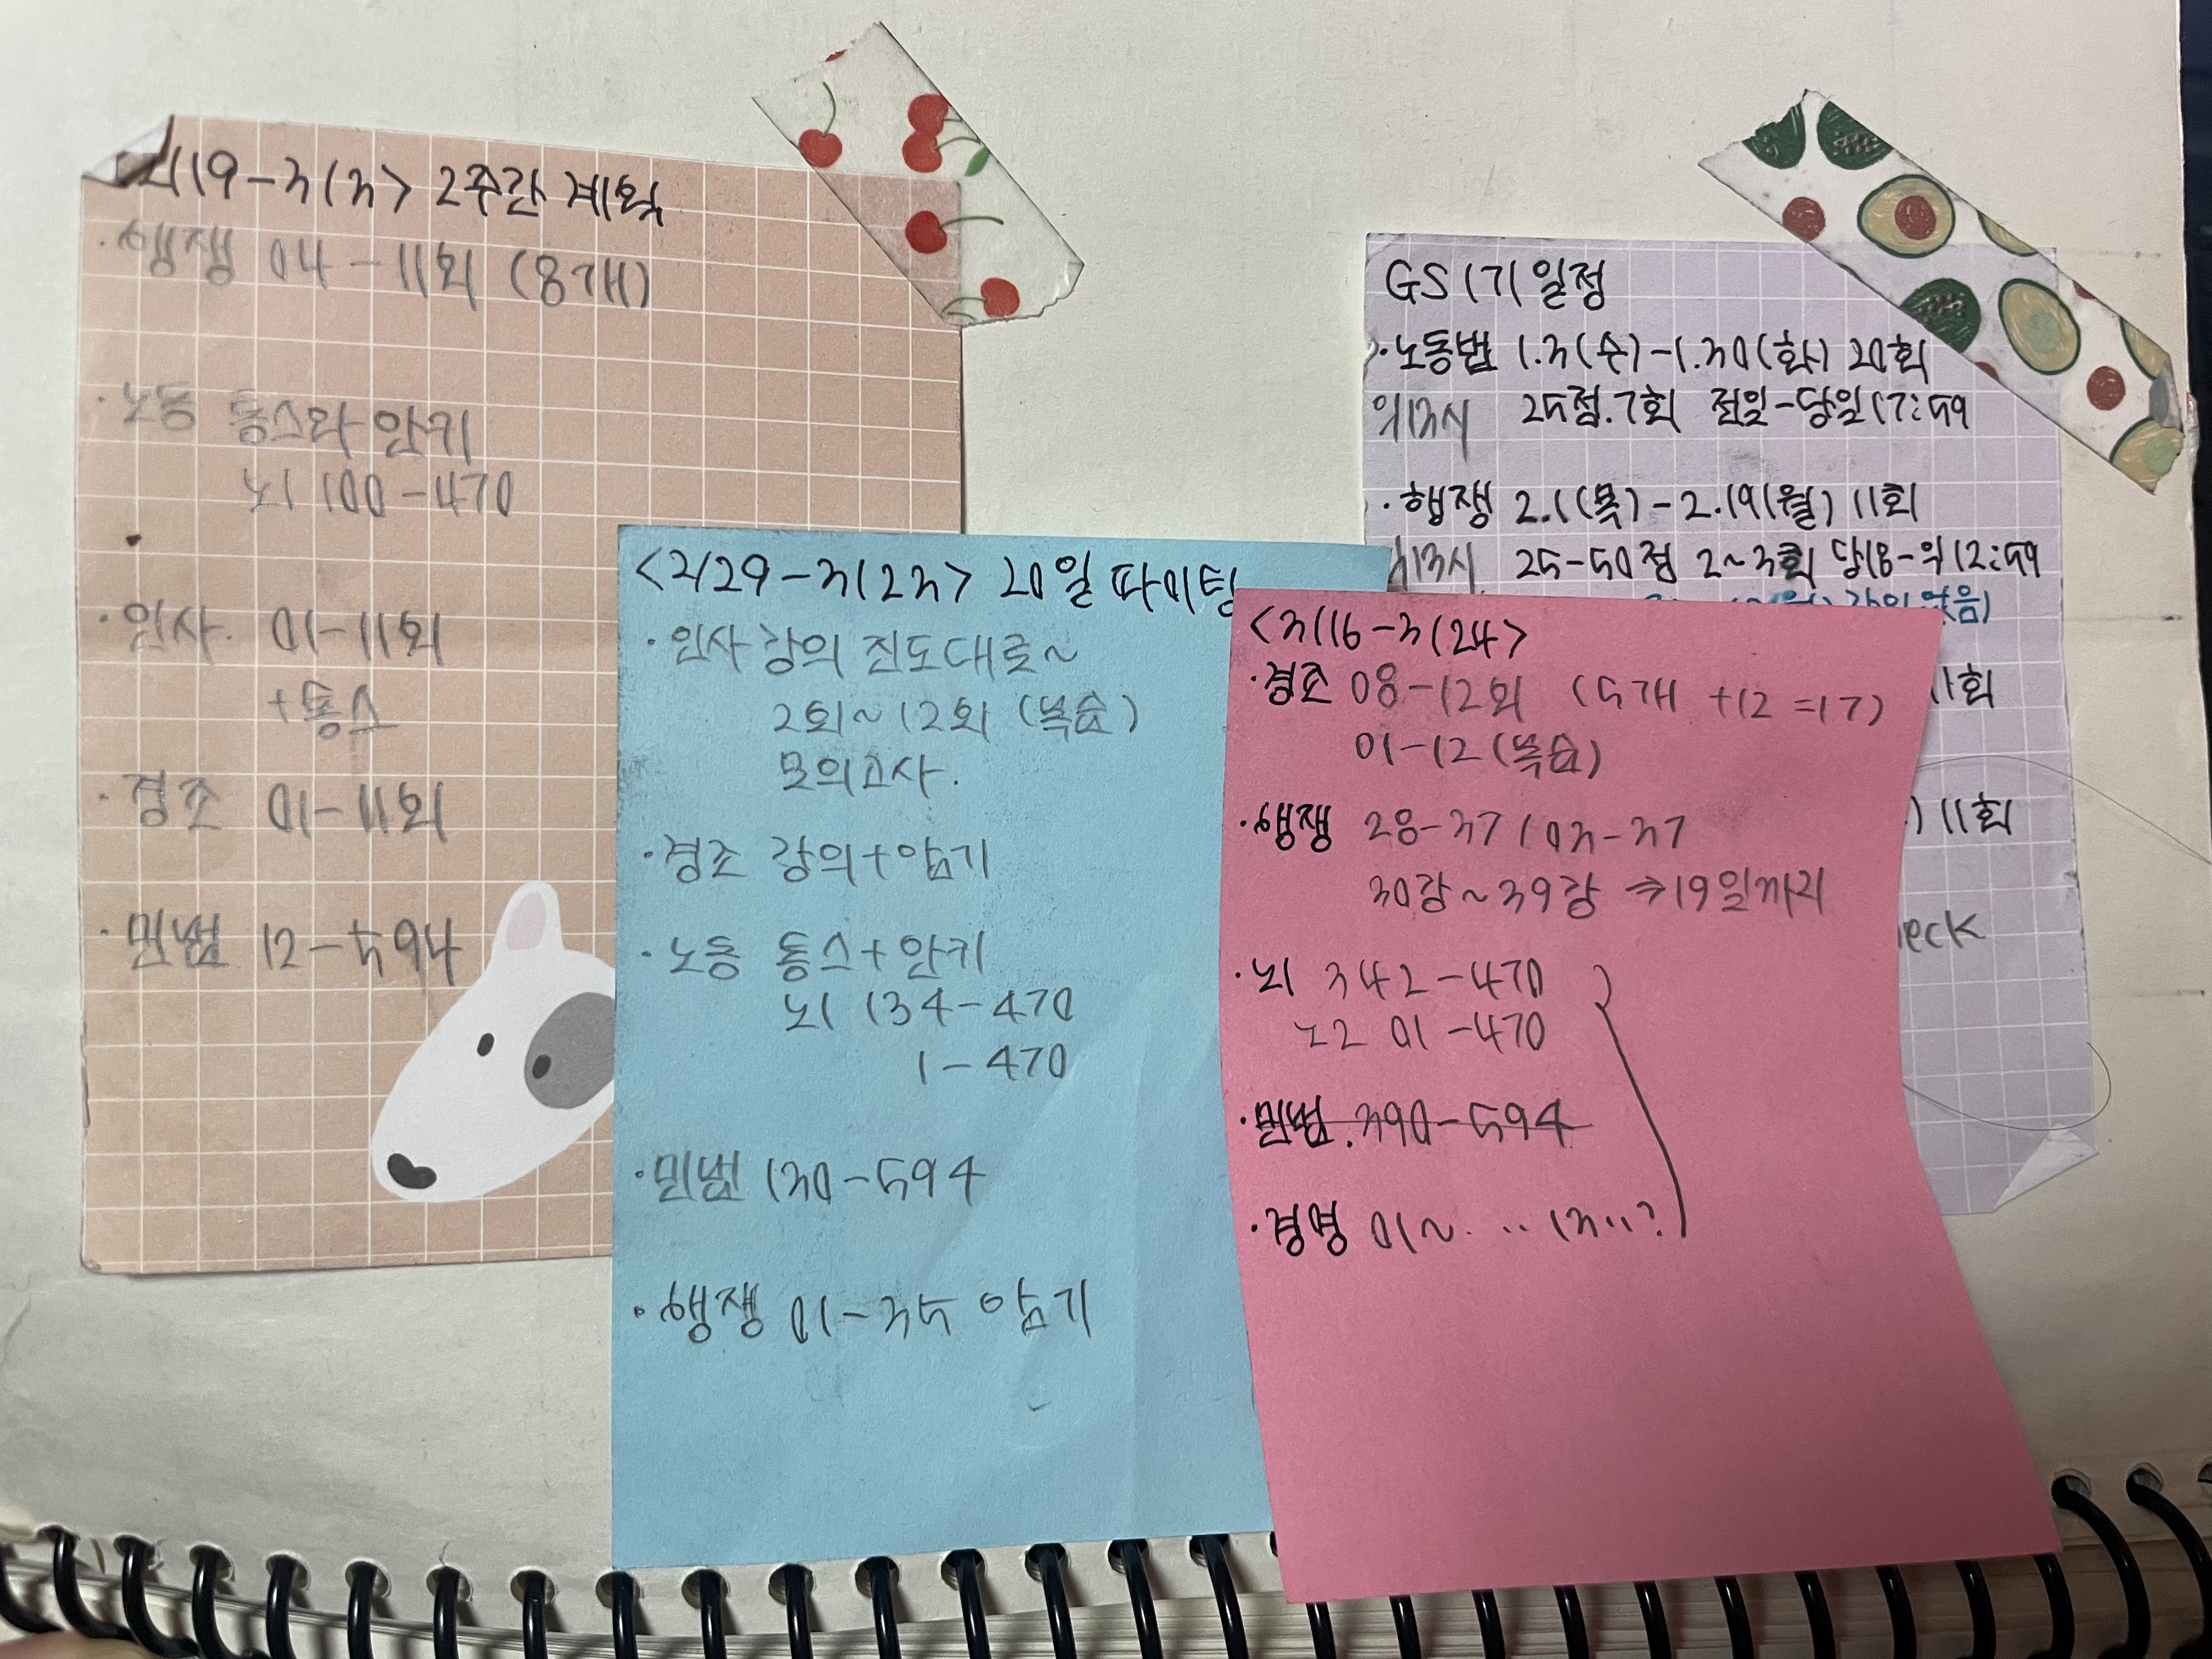 2/19-3/3> 2주간 계획
· 행쟁 04-11회 (8개)
· 노동 통스와 안키
노1 100-470
· 인사. 01-11회
+통스
· 경조 01-11회
· 민법 12-594
<2/29-3/23> 20일 파이팅
· 인사 강의 진도대로~
2회~12회 (복습)
모의고사.
· 경조 강의+암기
· 노동 통스+안키
노1 134-470
1-470
· 민법 130-594
· 행쟁 01-35 암기
<3/16-3/24>
· 경조 08-12회 (5개 +12=17)
01-12 (복습)
· 행쟁 28-37/03-37
30강~39강 ⇒19일까지
· 노1 342-470
노2 01-470
· 민법. 390-594
· 경영 01~. ‥ 13‥?
GS 1기 일정
· 노동법 1.3(수)-1.30(화) 20회
25점.7회 전일-당일17:59
· 행쟁 2.1(목)-2.19(월) 11회
25-50점 2~3회 당18-익12:59
강의없음)
11회
) 11회
eck